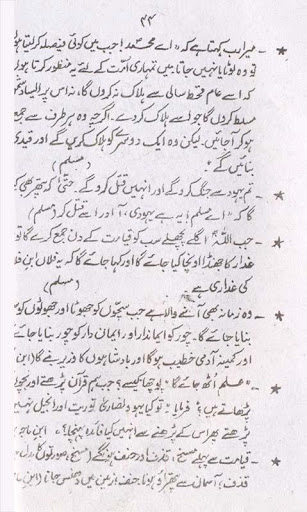 ۴۴
★ - میرا رب کہتا ہے کہ "اے محمد! جب میں کوئی فیصلہ کر لیتا ہوں
تو وہ لوٹایا نہیں جاتا میں تمہاری امت کے لئے یہ منظور کرتا ہوں
کہ اسے عام قحط سالی سے ہلاک نہ کروں گا، نہ اس پر ایسا دشمن
مسلط کروں گا جو اسے ہلاک کردے۔ اگرچہ وہ ہر طرف سے جمع
ہو کر آجائیں۔ لیکن وہ ایک دوسرے کو ہلاک کریں گے اور قیدی
بنائیں گے"۔ (مسلم)
★ - تم یہود سے جنگ کرو گے اور انہیں قتل کرو گے۔ حتیٰ کہ پتھر بھی کہے
گا کہ "اے مسلم! یہ ہے یہودی، آ اور اسے قتل کر" (مسلم)
★ - جب اللہ اگلے پچھلے سب کو قیامت کے دن جمع کرے گا تو
غدار کا جھنڈا اونچا کیا جائے گا اور کہا جائے گا کہ یہ فلاں ابن فلاں
کی غداری ہے۔ (مسلم)
★ - وہ زمانہ بھی آنے والا ہے جب سچوں کو جھوٹا اور جھوٹوں کو سچا
بنایا جائے گا۔ چور کو ایماندار اور ایمان دار کو چور بنایا جائے
اور کمینہ آدمی خطیب ہوگا اور بادشاہوں کا وزیر بنے گا (ابن
★ - "علم اٹھ جائے گا" پوچھا کیسے؟ جب ہم قرآن پڑھتے اور بچوں
پڑھاتے ہیں؟ فرمایا "تو کیا یہود و نصاریٰ توریت اور انجیل نہیں
پڑھتے پھر اس کے پڑھنے سے انہیں کیا فائدہ پہنچا؟" ابن ماجہ
★ - قیامت سے پہلے مسخ، قذف اور خسف ہوں گے (مسخ، صورتوں کا بدل
قذف، آسمان سے پتھراؤ ہونا، خسف، زمین میں دھنس جانا) (ابن ما